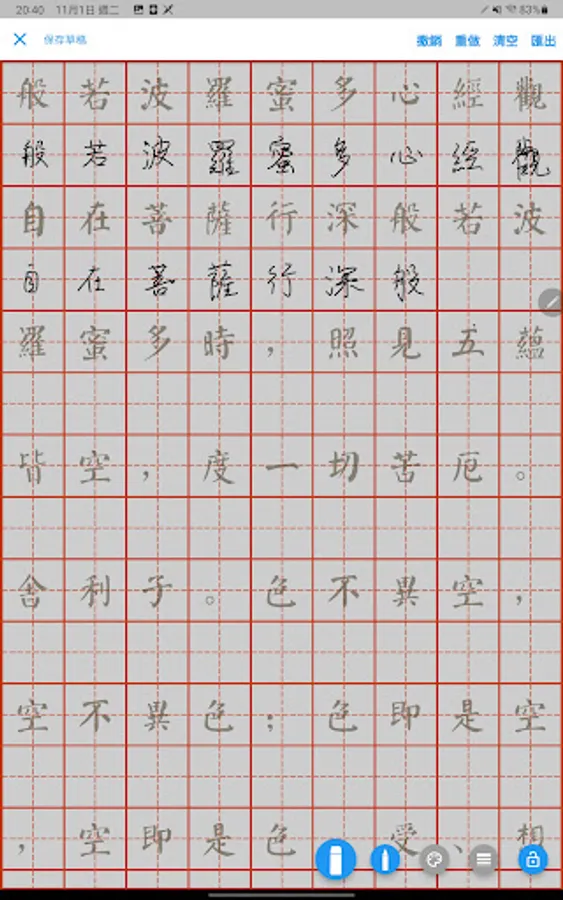 20:40 11月1日 週二 83%
保存草稿 撤銷 重做 清空 匯出
般若波羅蜜多心經觀
般若波羅蜜多心經觀
自在菩薩行深般若波
自在菩薩行深般
羅蜜多時，照見五蘊
皆空，度一切苦厄。
舍利子。色不異空，
空不異色；色即是空
，空即是色 受、相